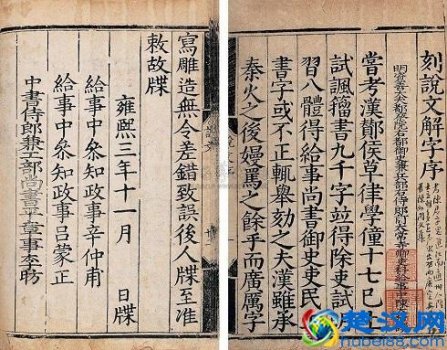 刻說文解字序
嘗考漢鄼侯草律學僮十七已上
試諷籀書九千字竝得除吏試
習八體得給事尚書御史吏民
書字或不正輒舉劾之夫漢雖承
秦火之後嫚罵之餘乎而廣厲字
寫雕造無令差錯致誤後人牒至准
敕故牒
雍熙三年十一月 日牒
給事中叅知政事辛仲甫
給事中叅知政事呂蒙正
中書侍郎兼工部尚書平章事李昉
楚汉网
hubei88.com